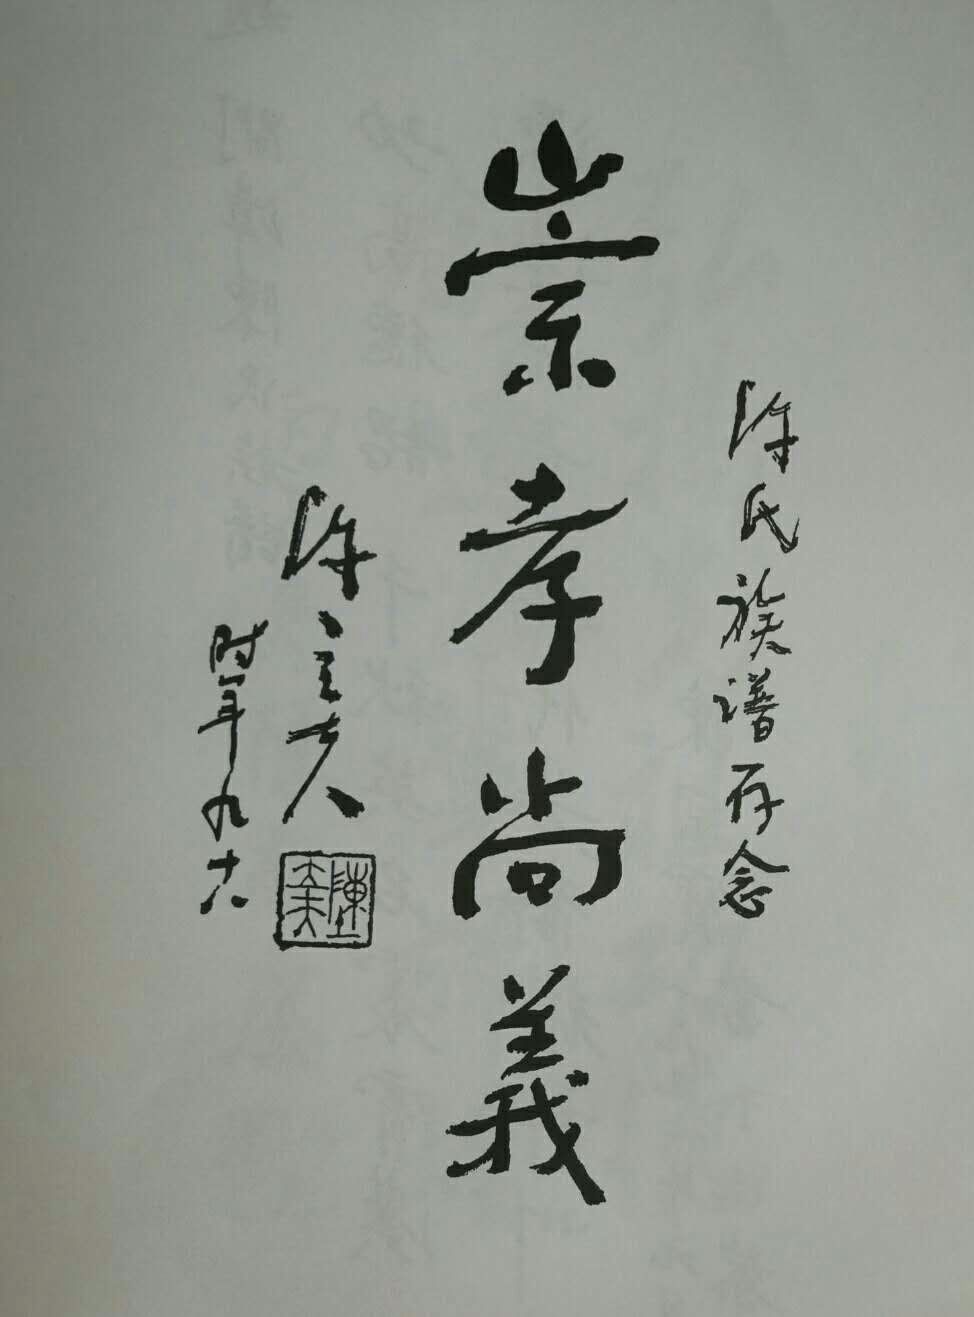 陈氏族谱存念
崇孝尚義
陈立夫
时年九十八
陳立夫